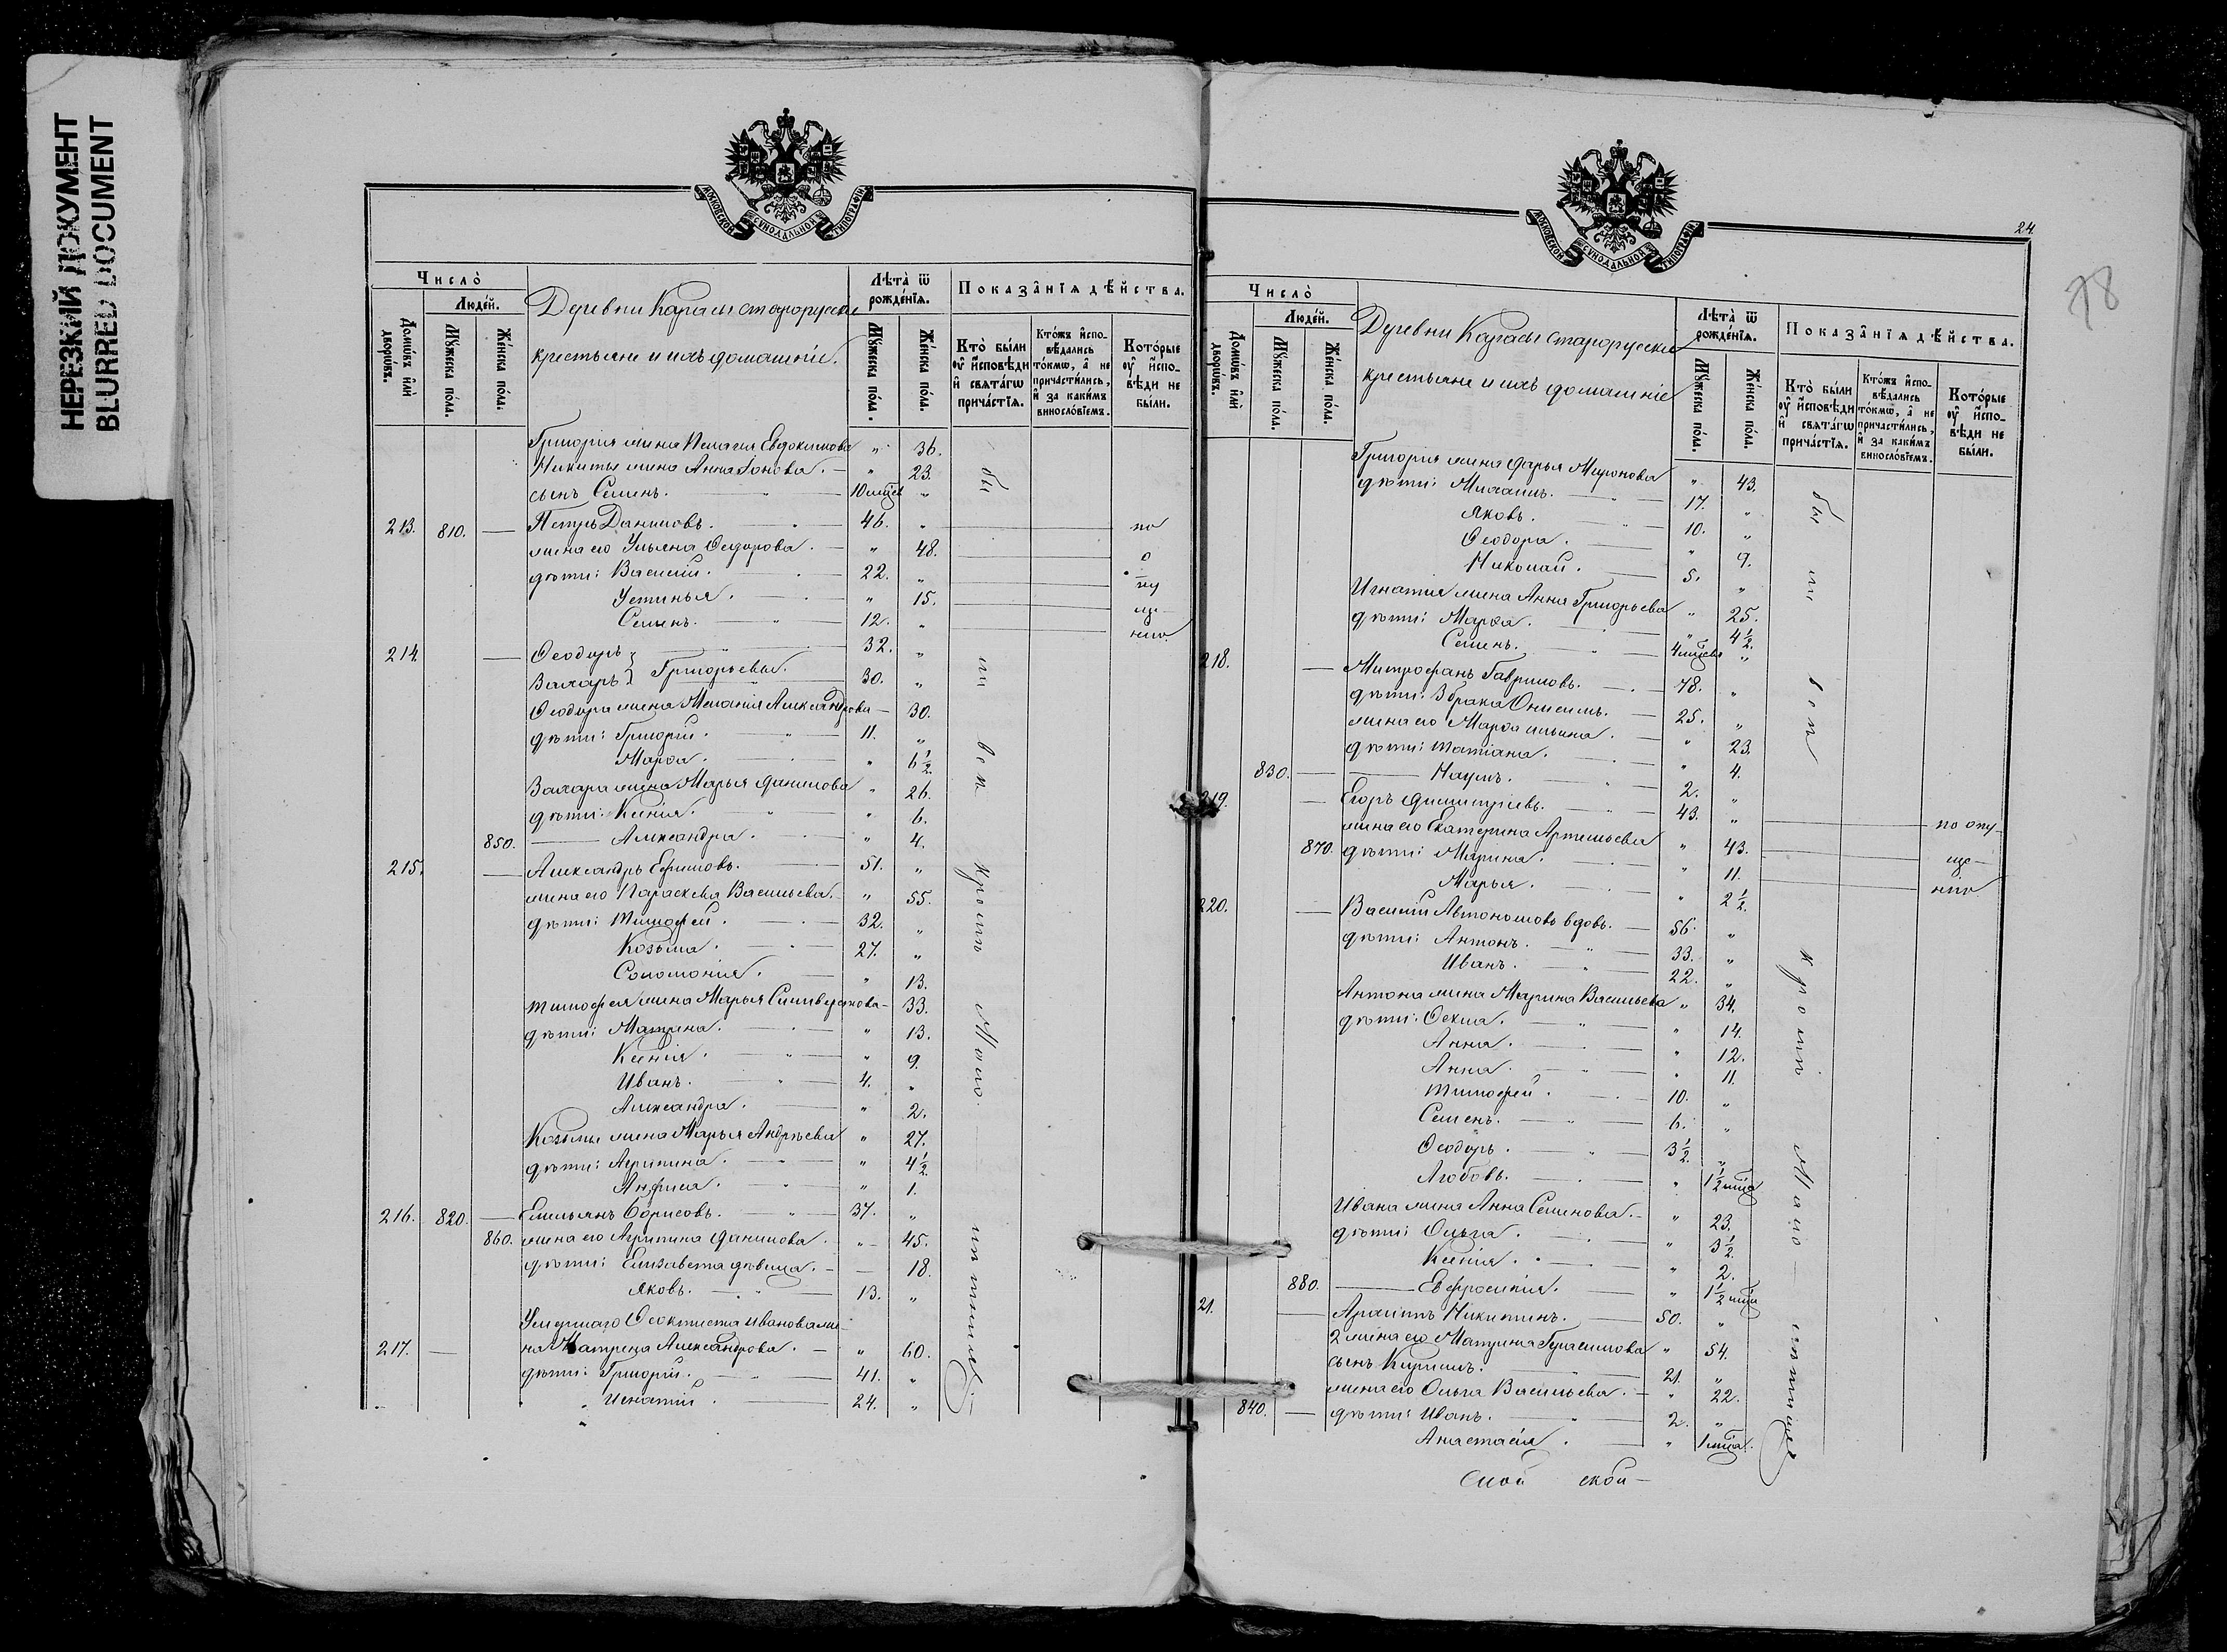 НЕРЕЗКИЙ ДОКУМЕНТ
BLURRED DOCUMENT
МОСКОВСКОЙ СѴНОДАЛЬНОЙ ТИПОГРАФІИ
Число̀
Люде́й.
Домѡ́въ и҆лѝ дворѡ́въ.
Мꙋ́жеска по́ла.
Же́нска по́ла.
Деревни Карасы старорусскіе
крестьяне и ихъ домашніе.
Лѣ́та ѿ рожде́нїѧ.
Мꙋ́жеска по́ла.
Же́нска по́ла.
Показа̑нїѧ дѣ́йства.
Кто̀ бы́ли ᲂу҆ и҆сповѣ́ди и҆ свѧта́гѡ прича́стїѧ.
Кто́жъ и҆сповѣ́дались то́кмѡ, а҆ не причасти́лись, и҆ за каки́мъ винословїемъ.
Кото́рые ᲂу҆ и҆сповѣ́ди не бы́ли.
Григорія жена Пелагія Евдокимова " 36.
Никиты жена Анна Іонова. " 23.
сынъ Семенъ. 10 мцев "
213. 810. Петръ Даниловъ. 46. " по
жена его Ульяна Ѳедорова. " 48. о
дѣти: Василій. 22. " пу
Устинья. " 15. ще-
Семенъ. 12. " нію.
214. Ѳеодоръ 32. "
Захаръ } Григорьевы. 30. "
Ѳеодора жена Меланія Александрова 30.
дѣти: Григорій. 11. "
Марѳа. " 6 1/2.
Захара жена Марья Данилова " 26.
дѣти: Ксенія. " 6.
850. Александра. " 4.
215. Александръ Ефимовъ. 51. "
жена его Параскева Васильева. " 55.
дѣти: Тимофей. 32. "
Козьма. 27. "
Соломонія. " 13.
Тимофея жена Марья Силиверстова 33.
дѣти: Матрена. " 13.
Ксенія. " 9.
Иванъ. 4. "
Александра. " 2.
Козьмы жена Марья Андреева " 27.
дѣти: Агрипина. " 4 1/2.
Анфиса. " 1.
216. 820. Емельянъ Борисовъ. 37. "
860. жена его Агрипина Данилова. " 45.
дѣти: Елизавета дѣвица. 18.
Яковъ. 13. "
Умершаго Ѳеоктиста Иванова же-
217. на Матрена Александрова. " 60.
дѣти: Григорій. 41. "
Игнатій. 24. "
бы ли всѣ кромѣ мало лѣтнихъ
24.
78
МОСКОВСКОЙ СѴНОДАЛЬНОЙ ТИПОГРАФІИ
Число̀
Люде́й.
Домѡ́въ и҆лѝ дворѡ́въ.
Мꙋ́жеска по́ла.
Же́нска по́ла.
Деревни Карасы старорусскіе
крестьяне и ихъ домашніе
Лѣ́та ѿ рожде́нїѧ.
Мꙋ́жеска по́ла.
Же́нска по́ла.
Показа̑нїѧ дѣ́йства.
Кто̀ бы́ли ᲂу҆ и҆сповѣ́ди и҆ свѧта́гѡ прича́стїѧ.
Кто́жъ и҆сповѣ́дались то́кмѡ, а҆ не причасти́лись, и҆ за каки́мъ винословїемъ.
Кото́рые ᲂу҆ и҆сповѣ́ди не бы́ли.
Григорія жена Дарья Миронова " 43.
дѣти: Михаилъ. 17. "
Яковъ. 10. "
Ѳеодора. " 9.
Николай. 5. "
Игнатія жена Анна Григорьева " 25.
дѣти: Марѳа. " 4 1/2.
Семенъ. 4 мцев "
218. Митрофанъ Гавриловъ. 48. "
дѣти: 3 брака Онисимъ. 25. "
жена его Марѳа Ильина. " 23.
дѣти: Татіана. " 4.
830. Наумъ. 2. "
219. Егоръ Димитріевъ. 43. " по опу-
жена его Екатерина Артемьева " 43. ще-
870. дѣти: Марина. " 11. нію.
Марья. " 2 1/2.
220. Василій Автономовъ вдовъ. 56. "
дѣти: Антонъ. 33. "
Иванъ. 22. "
Антона жена Марина Васильева " 34.
дѣти: Ѳекла. " 14.
Анна. " 12.
Анна. " 11.
Тимофей. 10. "
Семенъ. 6. "
Ѳеодоръ. 3 1/2. "
Любовь. " 1 1/2 мца
Ивана жена Анна Семенова. " 23.
дѣти: Ольга. " 3 1/2.
Ксенія. " 2.
880. Евфросинія. " 1 1/2 мца
21. Архипъ Никитинъ. 50. "
2 жена его Матрена Герасимова " 54.
сынъ Кирилъ. 21. "
жена его Ольга Васильева. " 22.
840. дѣти: Иванъ. 2. "
Анастасія. " 1 мца.
бы ли всѣ кромѣ мало лѣтнихъ